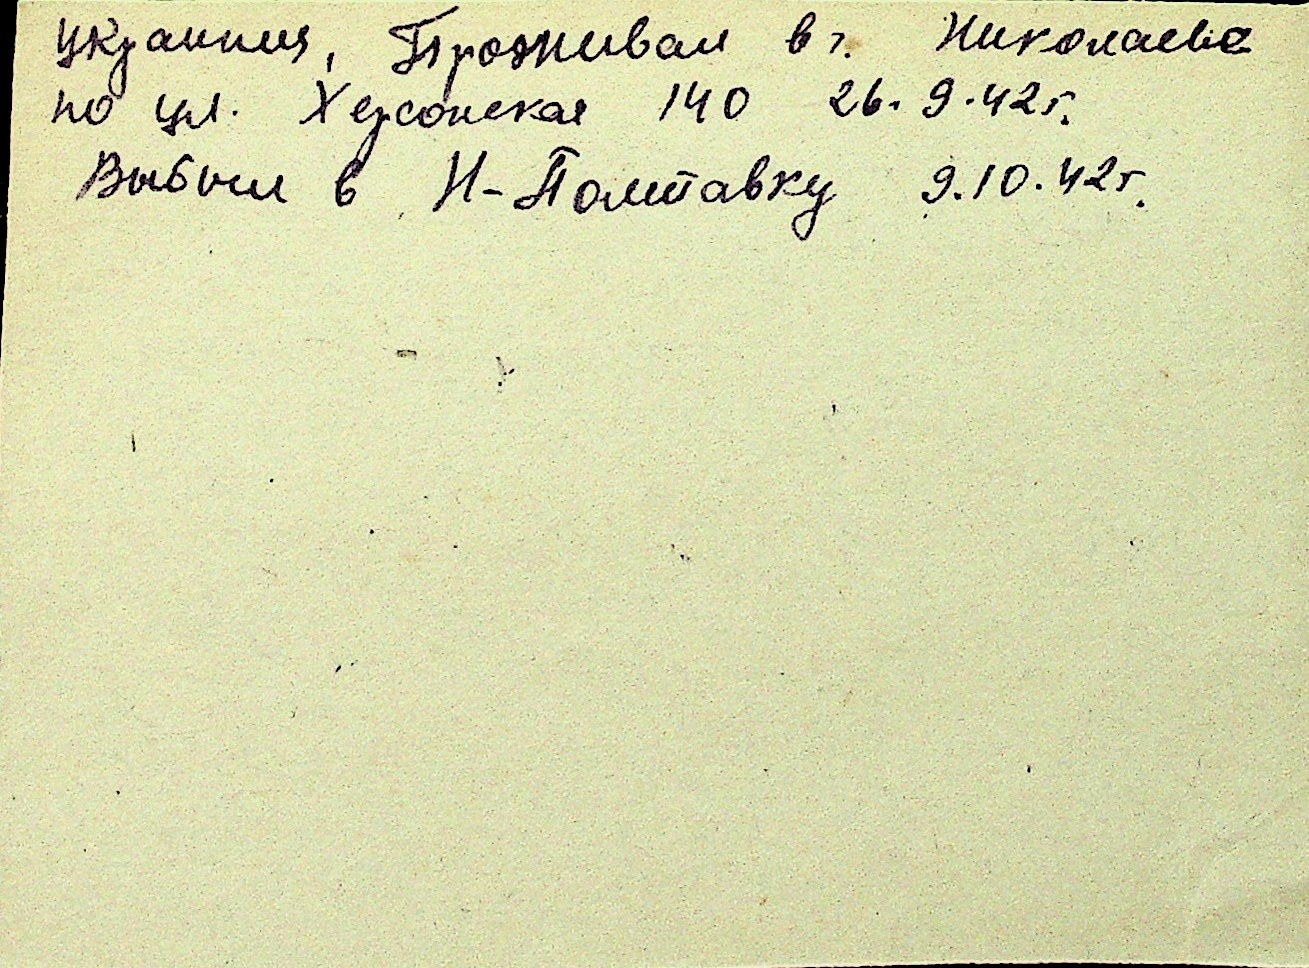 украинец, Проживал в г. Николаеве
по ул. Херсонская 140 26.9.42г.
Выбыл в Н-Полтавку 9.10.42г.